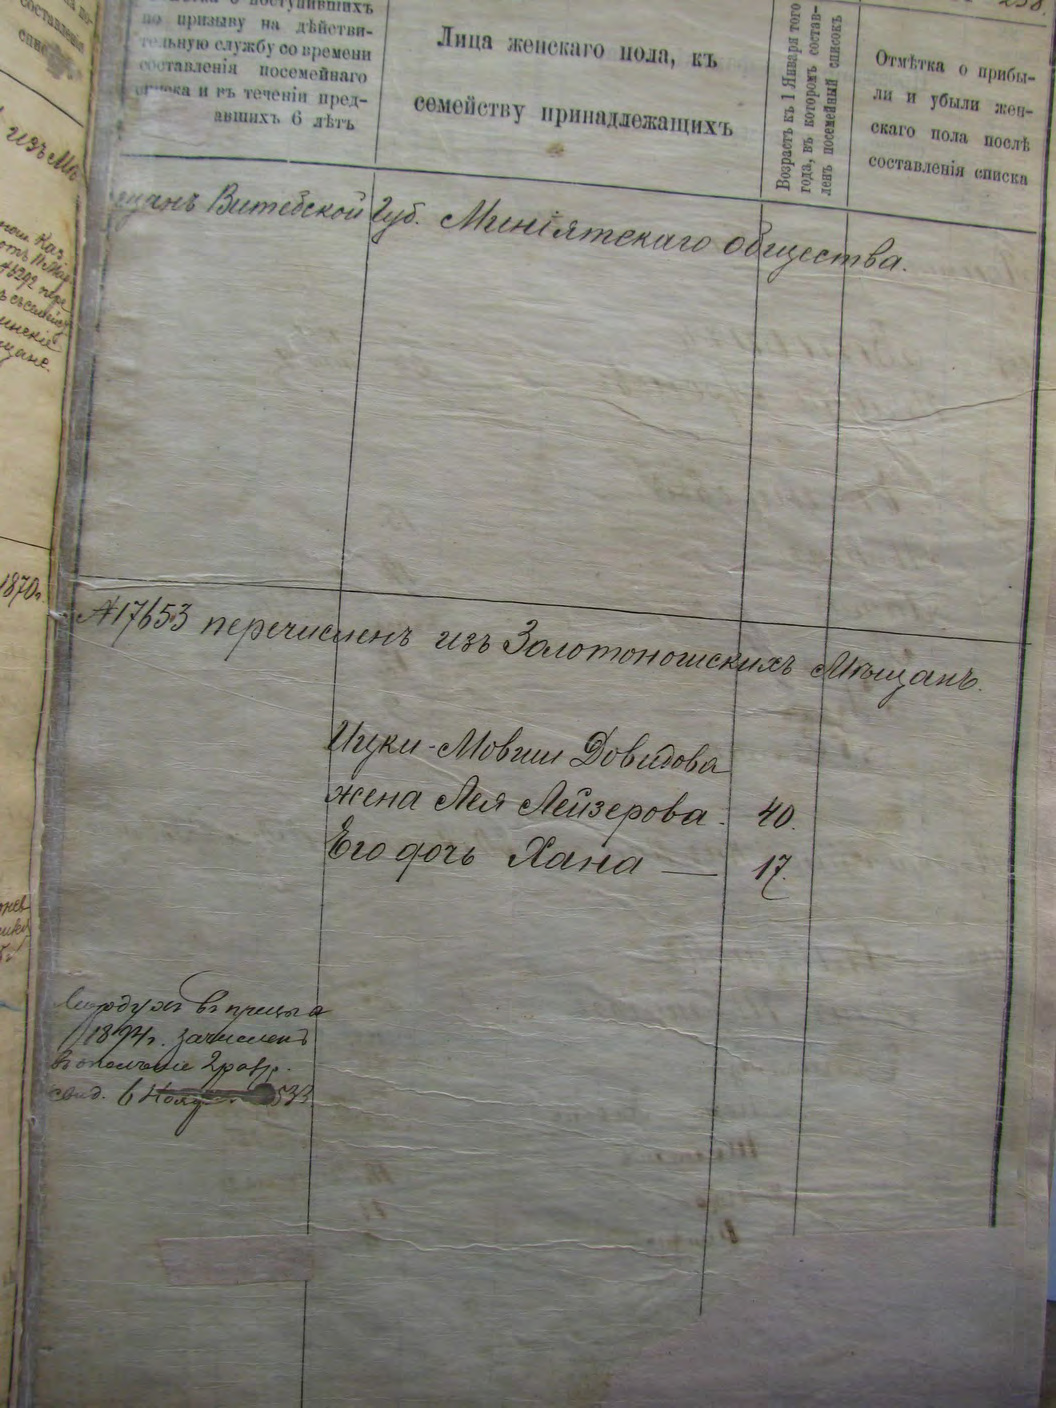 258.
поступившихъ
по призыву на дѣйстви-
тельную службу со времени
составленія посемейнаго
списка и въ теченіи пред-
авшихъ 6 лѣтъ
Лица женскаго пола, къ
семейству принадлежащихъ
Возрастъ къ 1 Января того
года, въ которомъ состав-
ленъ посемейный списокъ
Отмѣтка о прибы-
ли и убыли жен-
скаго пола послѣ
составленія списка
изъ
щанъ Витебской Губ. общества.
№ 17653 перечисленъ изъ Золотоношскихъ Мѣщанъ.
1870г.
Ицки-Мовши Довидова
жена Лея Лейзерова. 40.
Его дочь Хана — 17.
въ
1894г. зачисленъ
въ ополченіе 2 разр.
свид. 6 533